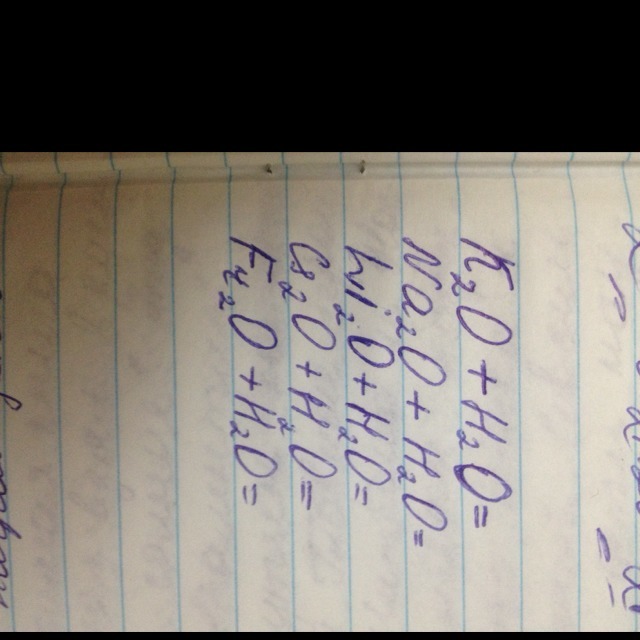 K₂O + H₂O =
Na₂O + H₂O =
Li₂O + H₂O =
Cs₂O + H₂O =
Fr₂O + H₂O =